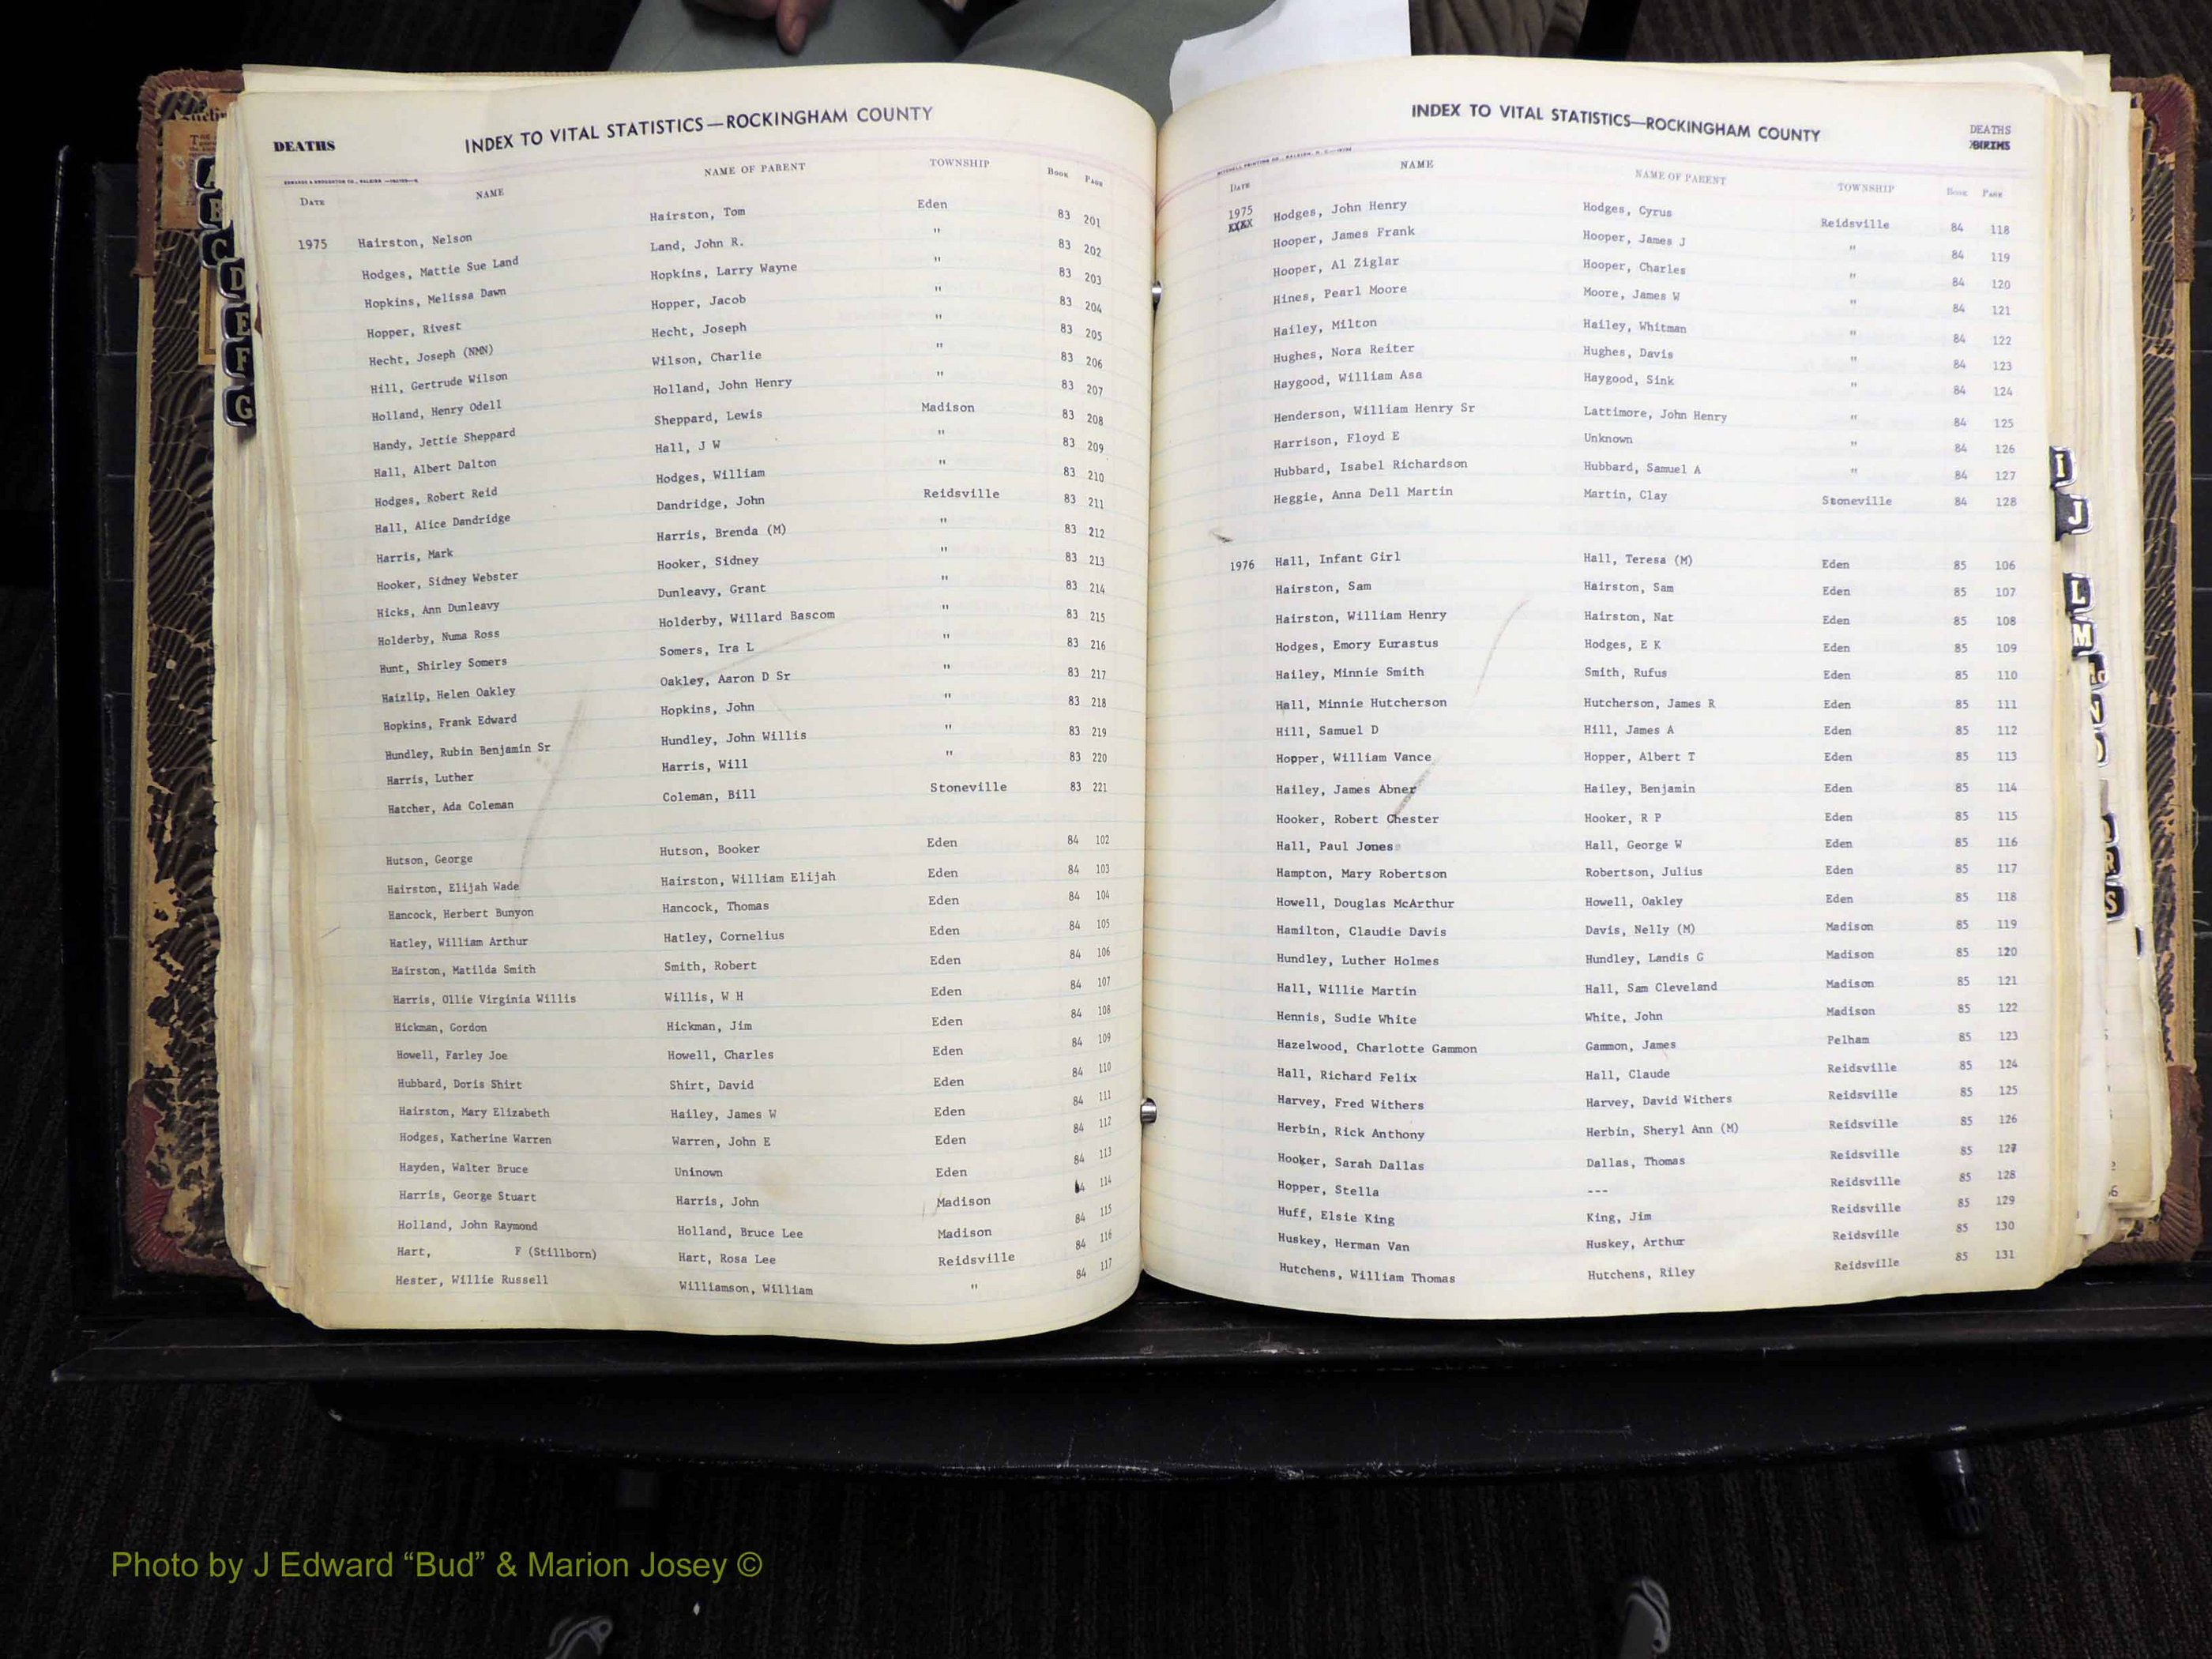 DEATHS
INDEX TO VITAL STATISTICS—ROCKINGHAM COUNTY
DATE NAME NAME OF PARENT TOWNSHIP BOOK PAGE
1975 Hairston, Nelson Hairston, Tom Eden 83 201
Hodges, Mattie Sue Land Land, John R. " 83 202
Hopkins, Melissa Dawn Hopkins, Larry Wayne " 83 203
Hopper, Rivest Hopper, Jacob " 83 204
Hecht, Joseph (NMN) Hecht, Joseph " 83 205
Hill, Gertrude Wilson Wilson, Charlie " 83 206
Holland, Henry Odell Holland, John Henry " 83 207
Handy, Jettie Sheppard Sheppard, Lewis Madison 83 208
Hall, Albert Dalton Hall, J W " 83 209
Hodges, Robert Reid Hodges, William " 83 210
Hall, Alice Dandridge Dandridge, John Reidsville 83 211
Harris, Mark Harris, Brenda (M) " 83 212
Hooker, Sidney Webster Hooker, Sidney " 83 213
Hicks, Ann Dunleavy Dunleavy, Grant " 83 214
Holderby, Numa Ross Holderby, Willard Bascom " 83 215
Hunt, Shirley Somers Somers, Ira L " 83 216
Haizlip, Helen Oakley Oakley, Aaron D Sr " 83 217
Hopkins, Frank Edward Hopkins, John " 83 218
Hundley, Rubin Benjamin Sr Hundley, John Willis " 83 219
Harris, Luther Harris, Will " 83 220
Hatcher, Ada Coleman Coleman, Bill Stoneville 83 221
Hutson, George Hutson, Booker Eden 84 102
Hairston, Elijah Wade Hairston, William Elijah Eden 84 103
Hancock, Herbert Bunyon Hancock, Thomas Eden 84 104
Hatley, William Arthur Hatley, Cornelius Eden 84 105
Hairston, Matilda Smith Smith, Robert Eden 84 106
Harris, Ollie Virginia Willis Willis, W H Eden 84 107
Hickman, Gordon Hickman, Jim Eden 84 108
Howell, Farley Joe Howell, Charles Eden 84 109
Hubbard, Doris Shirt Shirt, David Eden 84 110
Hairston, Mary Elizabeth Hailey, James W Eden 84 111
Hodges, Katherine Warren Warren, John E Eden 84 112
Hayden, Walter Bruce Uninown Eden 84 113
Harris, George Stuart Harris, John Madison 84 114
Holland, John Raymond Holland, Bruce Lee Madison 84 115
Hart, F (Stillborn) Hart, Rosa Lee Reidsville 84 116
Hester, Willie Russell Williamson, William " 84 117
INDEX TO VITAL STATISTICS—ROCKINGHAM COUNTY
DEATHS
BIRTHS
DATE NAME NAME OF PARENT TOWNSHIP BOOK PAGE
1975 Hodges, John Henry Hodges, Cyrus Reidsville 84 118
XXXX Hooper, James Frank Hooper, James J " 84 119
Hooper, Al Ziglar Hooper, Charles " 84 120
Hines, Pearl Moore Moore, James W " 84 121
Hailey, Milton Hailey, Whitman " 84 122
Hughes, Nora Reiter Hughes, Davis " 84 123
Haygood, William Asa Haygood, Sink " 84 124
Henderson, William Henry Sr Lattimore, John Henry " 84 125
Harrison, Floyd E Unknown " 84 126
Hubbard, Isabel Richardson Hubbard, Samuel A " 84 127
Heggie, Anna Dell Martin Martin, Clay Stoneville 84 128
1976 Hall, Infant Girl Hall, Teresa (M) Eden 85 106
Hairston, Sam Hairston, Sam Eden 85 107
Hairston, William Henry Hairston, Nat Eden 85 108
Hodges, Emory Eurastus Hodges, E K Eden 85 109
Hailey, Minnie Smith Smith, Rufus Eden 85 110
Hall, Minnie Hutcherson Hutcherson, James R Eden 85 111
Hill, Samuel D Hill, James A Eden 85 112
Hopper, William Vance Hopper, Albert T Eden 85 113
Hailey, James Abner Hailey, Benjamin Eden 85 114
Hooker, Robert Chester Hooker, R P Eden 85 115
Hall, Paul Jones Hall, George W Eden 85 116
Hampton, Mary Robertson Robertson, Julius Eden 85 117
Howell, Douglas McArthur Howell, Oakley Eden 85 118
Hamilton, Claudie Davis Davis, Nelly (M) Madison 85 119
Hundley, Luther Holmes Hundley, Landis G Madison 85 120
Hall, Willie Martin Hall, Sam Cleveland Madison 85 121
Hennis, Sudie White White, John Madison 85 122
Hazelwood, Charlotte Gammon Gammon, James Pelham 85 123
Hall, Richard Felix Hall, Claude Reidsville 85 124
Harvey, Fred Withers Harvey, David Withers Reidsville 85 125
Herbin, Rick Anthony Herbin, Sheryl Ann (M) Reidsville 85 126
Hooker, Sarah Dallas Dallas, Thomas Reidsville 85 127
Hopper, Stella --- Reidsville 85 128
Huff, Elsie King King, Jim Reidsville 85 129
Huskey, Herman Van Huskey, Arthur Reidsville 85 130
Hutchens, William Thomas Hutchens, Riley Reidsville 85 131
A
B
C
D
E
F
G
I
J
L
M
N
O
R
S
Photo by J Edward “Bud” & Marion Josey ©